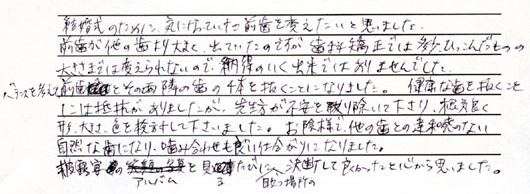 結婚式のために、気になっていた前歯を変えたいと思いました。
前歯が他の歯より大きく、出ていたのですが歯科矯正では多少ひっこんだものの
大きさまでは変えられないので納得のいく出来ではありませんでした。
バランスを考えて前歯とその両隣の歯の4本を抜くことになりました。健康な歯を抜くこと
には抵抗がありましたが、先生が不安を取り除いて下さり、根気良く
形、大きさ、色を検討して下さいました。お陰様で、他の歯との違和感のない
自然な歯になり、噛み合わせも良い仕上がりになりました。
披露宴のアルバムを見るたびに、決断して良かったと心から思いました。